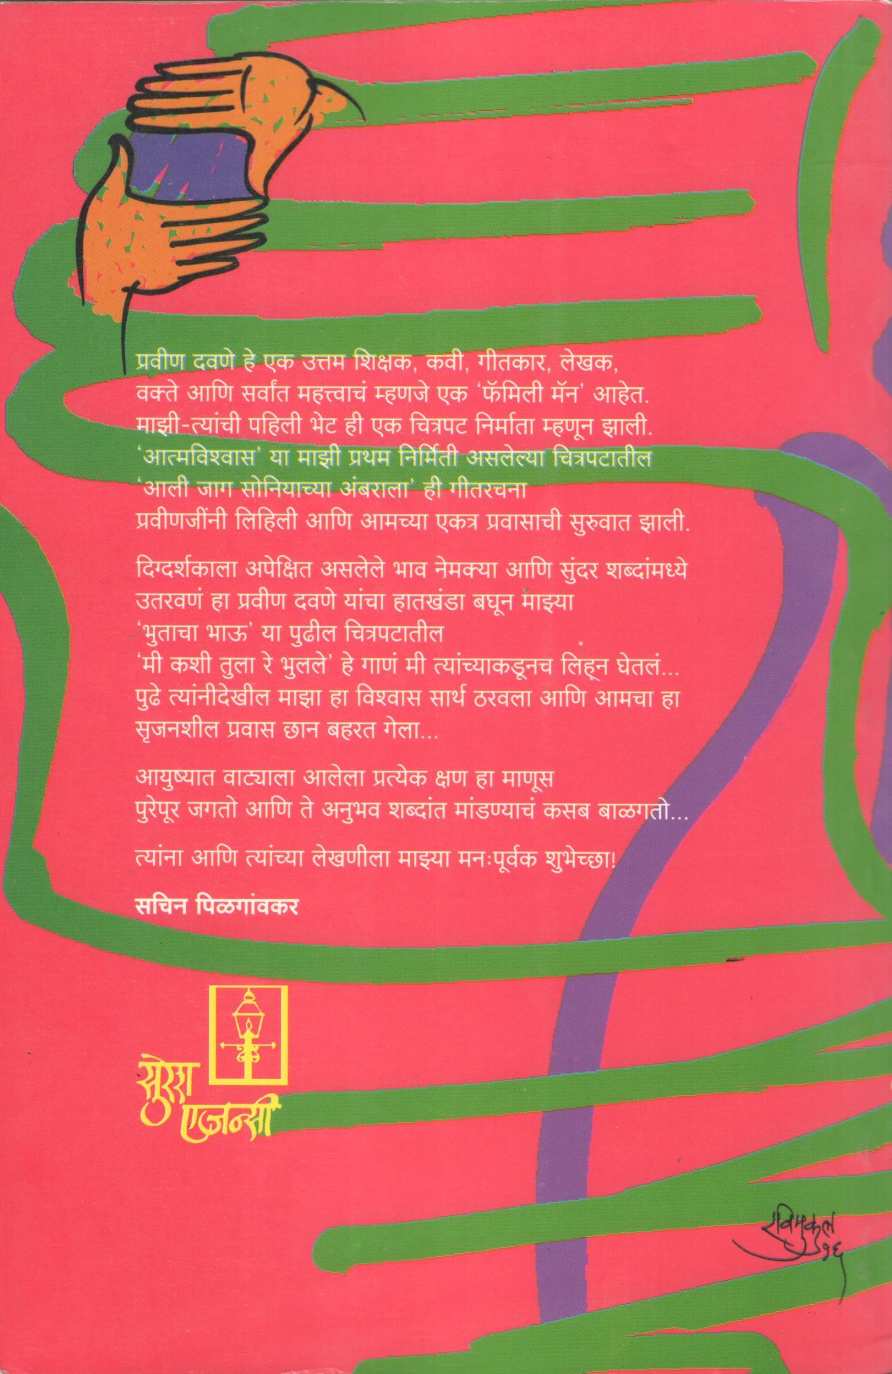 प्रवीण दवणे हे एक उत्तम शिक्षक, कवी, गीतकार, लेखक,
वक्ते आणि सर्वांत महत्त्वाचं म्हणजे एक ‘फॅमिली मॅन’ आहेत.
माझी-त्यांची पहिली भेट ही एक चित्रपट निर्माता म्हणून झाली.
‘आत्मविश्वास’ या माझी प्रथम निर्मिती असलेल्या चित्रपटातील
‘आली जाग सोनियाच्या अंबराला’ ही गीतरचना
प्रवीणजींनी लिहिली आणि आमच्या एकत्र प्रवासाची सुरुवात झाली.
दिग्दर्शकाला अपेक्षित असलेले भाव नेमक्या आणि सुंदर शब्दांमध्ये
उतरवणं हा प्रवीण दवणे यांचा हातखंडा बघून माझ्या
‘भुताचा भाऊ’ या पुढील चित्रपटातील
‘मी कशी तुला रे भुलले’ हे गाणं मी त्यांच्याकडूनच लिहून घेतलं...
पुढे त्यांनीदेखील माझा हा विश्वास सार्थ ठरवला आणि आमचा हा
सृजनशील प्रवास छान बहरत गेला...
आयुष्यात वाट्याला आलेला प्रत्येक क्षण हा माणूस
पुरेपूर जगतो आणि ते अनुभव शब्दांत मांडण्याचं कसब बाळगतो...
त्यांना आणि त्यांच्या लेखणीला माझ्या मनःपूर्वक शुभेच्छा!
सचिन पिळगांवकर
सुरेश
एजन्सी
रविमुकुल
१६